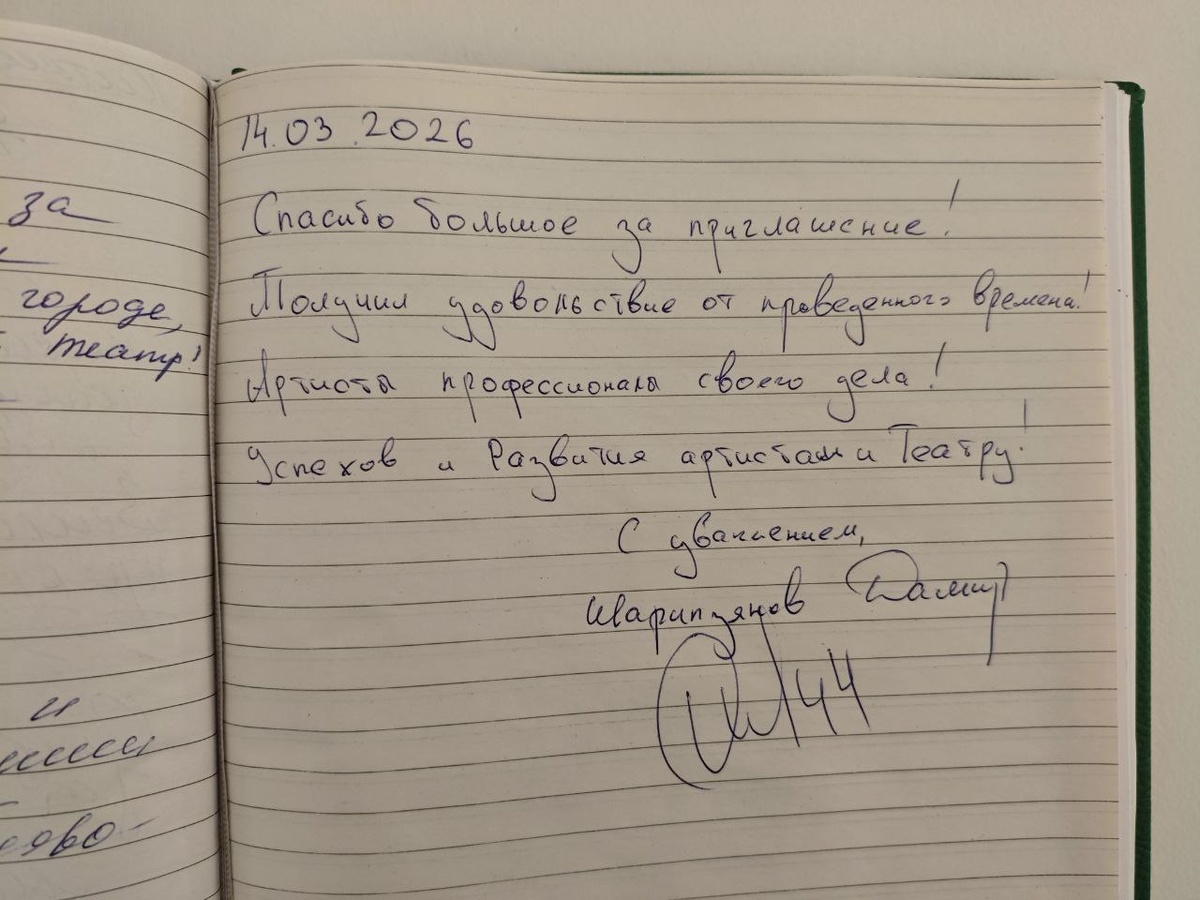 за
городе,
театр!
и
14.03.2026
Спасибо большое за приглашение!
Получил удовольствие от проведенного времена!
Артисты профессионалы своего дела!
Успехов и Развития артистам и Театру!
С уважением,
Шарипзянов Дамир
44